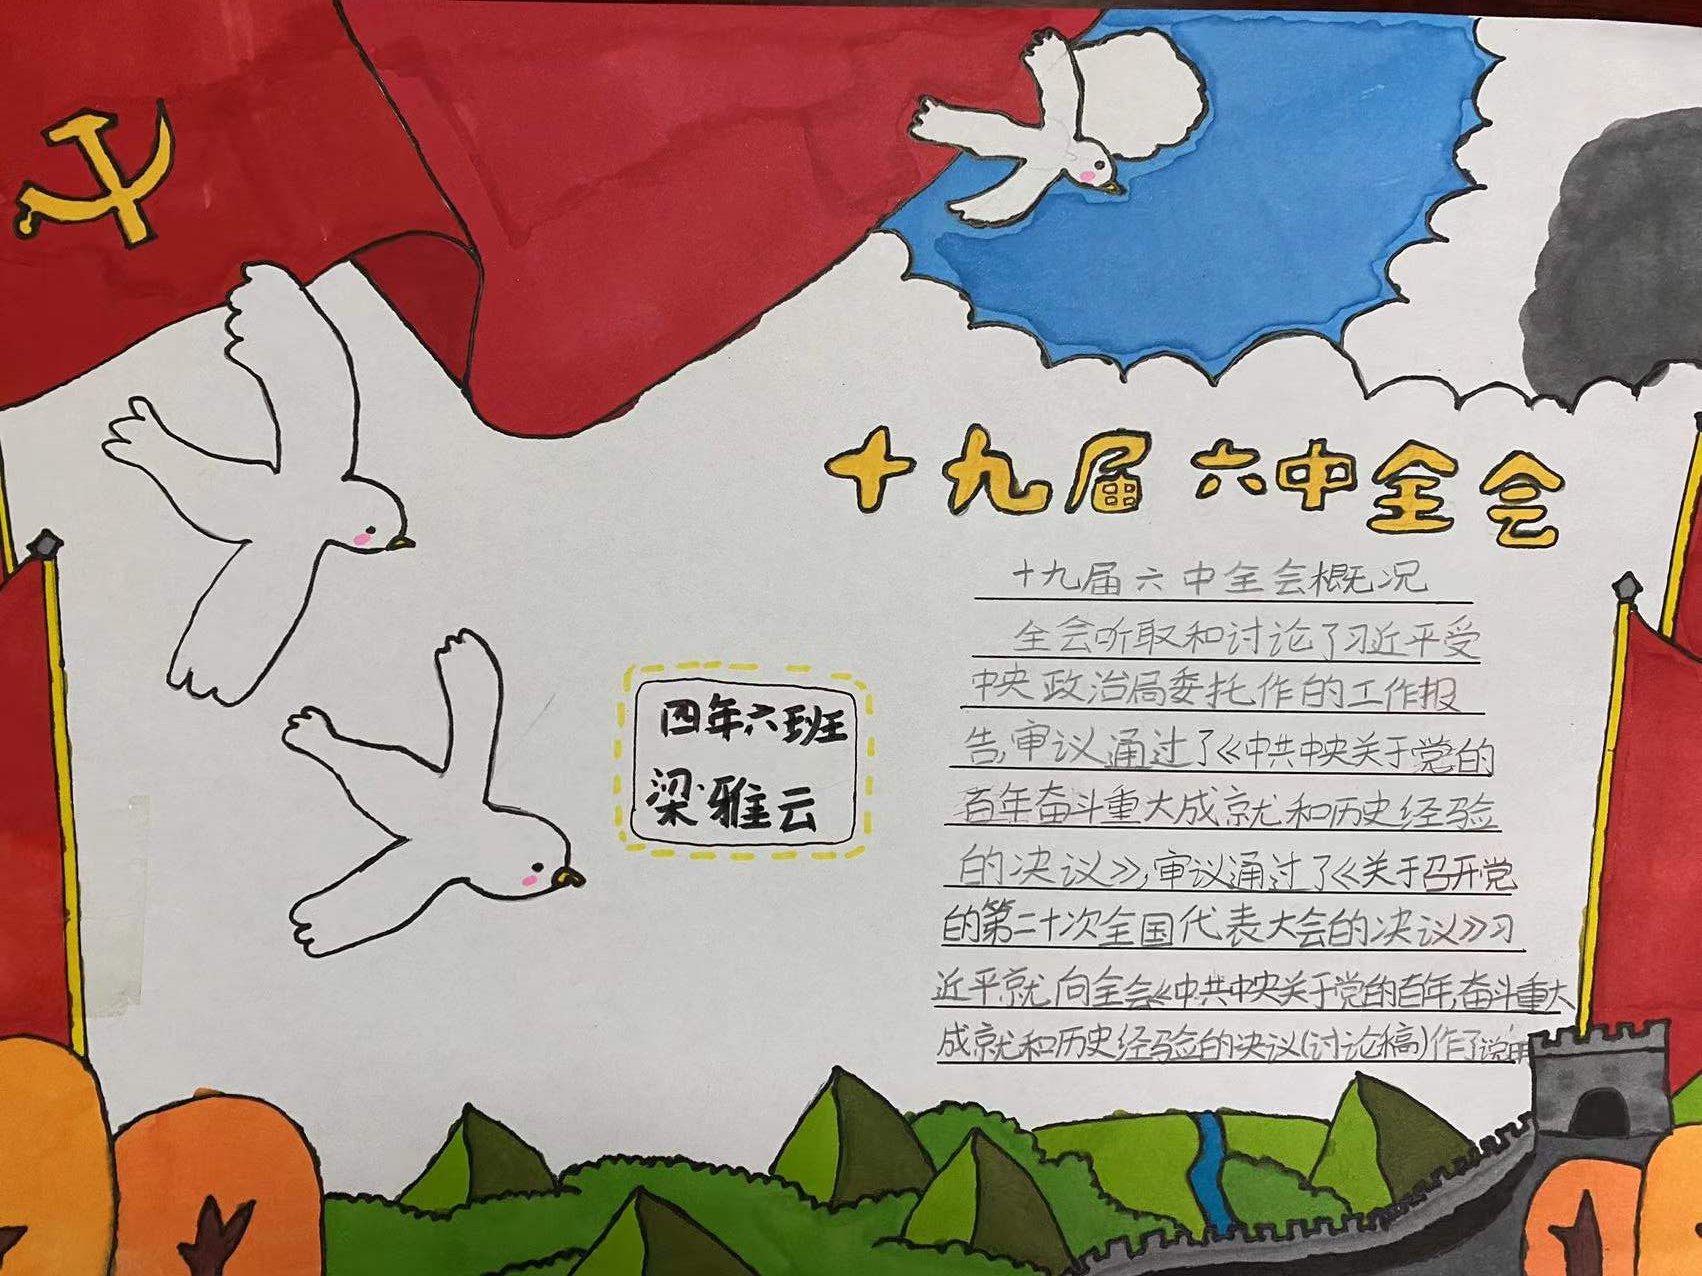 十九届六中全会
十九届六中全会概况
全会听取和讨论了习近平受
中央政治局委托作的工作报
告,审议通过了《中共中央关于党的
百年奋斗重大成就和历史经验
的决议》,审议通过了《关于召开党
的第二十次全国代表大会的决议》习
近平就向全会《中共中央关于党的百年,奋斗重大
成就和历史经验的决议(讨论稿)作了说明
四年六班
梁雅云